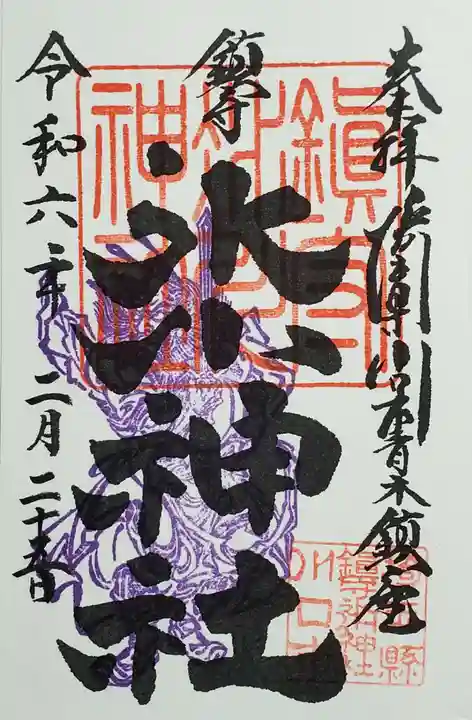 奉拝 埼玉県川口市青木鎮座
鎮守
氷川神社
令和六年 二月二十五日
鎮守氷川神社
埼玉縣
鎮守氷川神社
川口市